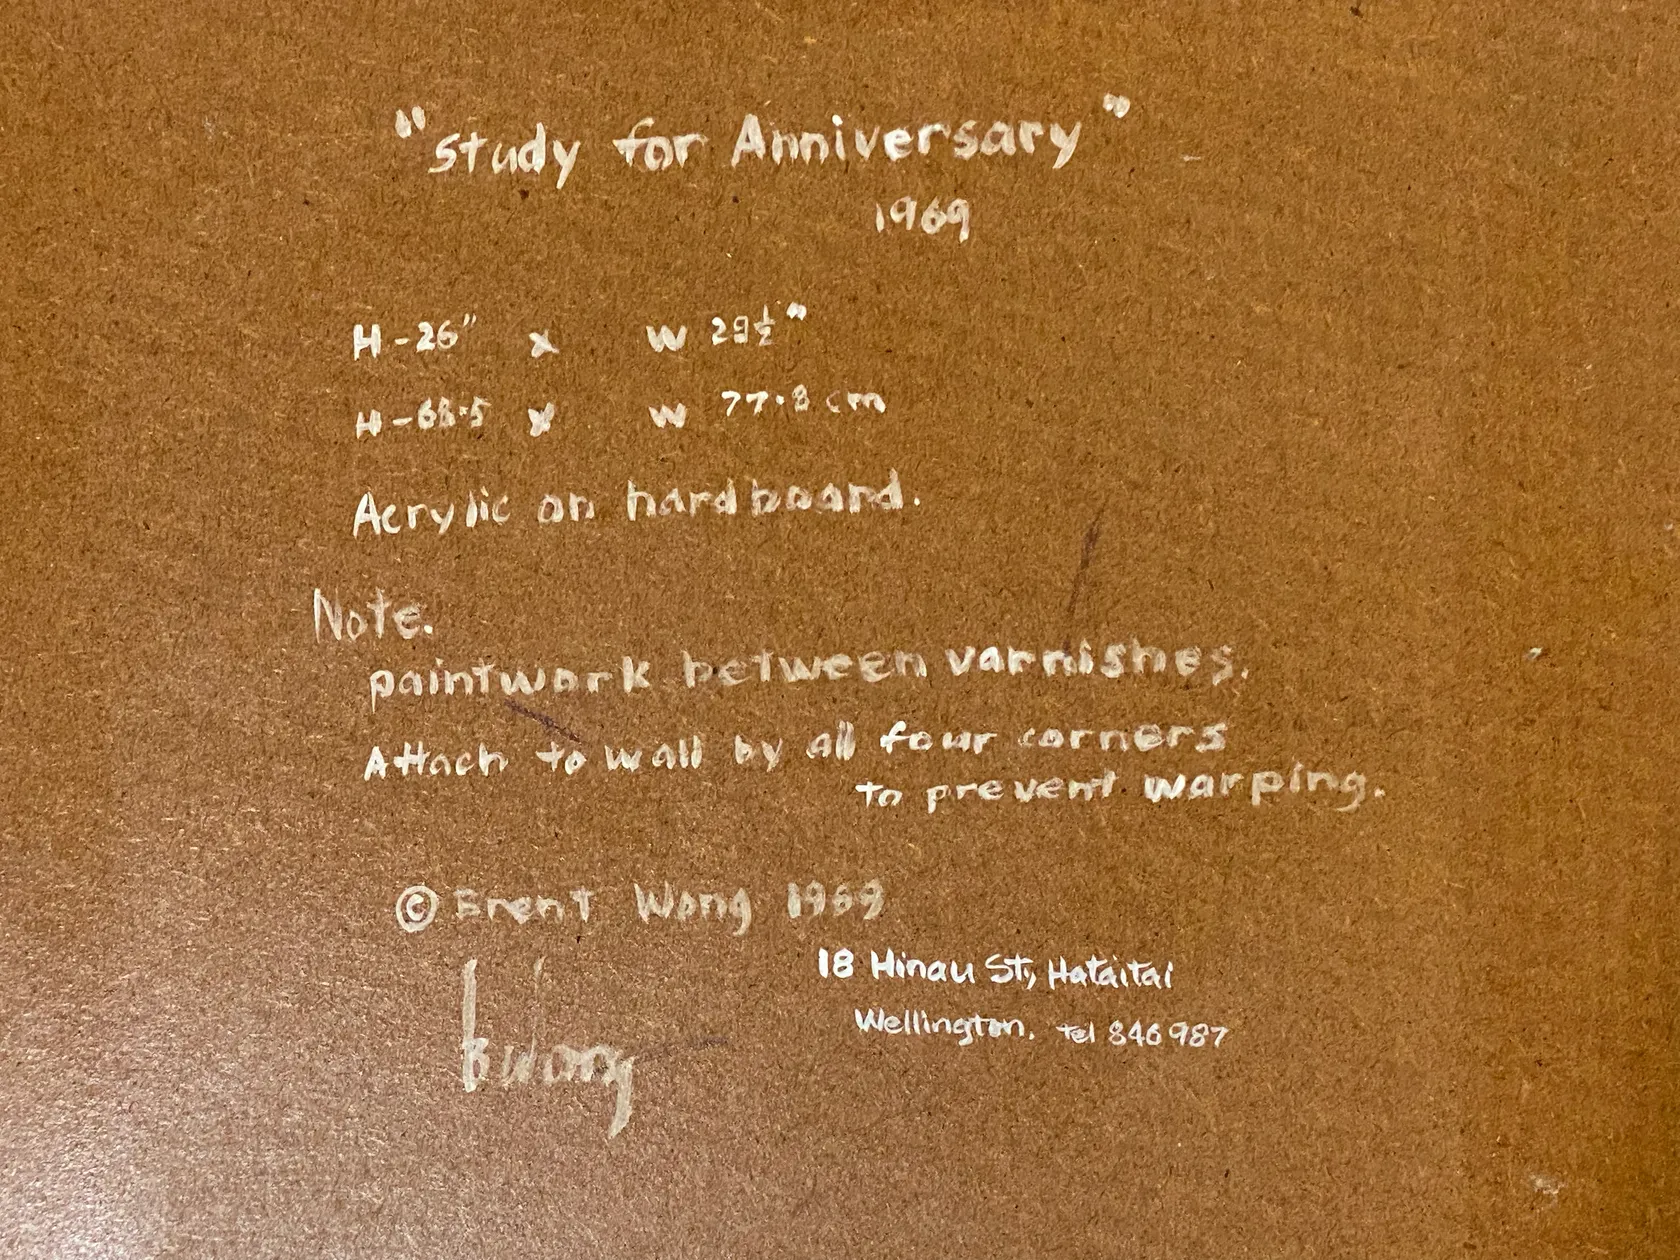 "Study for Anniversary"
1969
H-26" x W 29½"
H-68.5 x W 77.8 cm
Acrylic on hardboard.
Note.
paintwork between varnishes.
Attach to wall by all four corners
to prevent warping.
© Brent Wong 1969
18 Hinau St, Hataitai
Wellington. Tel 846 987
BWong